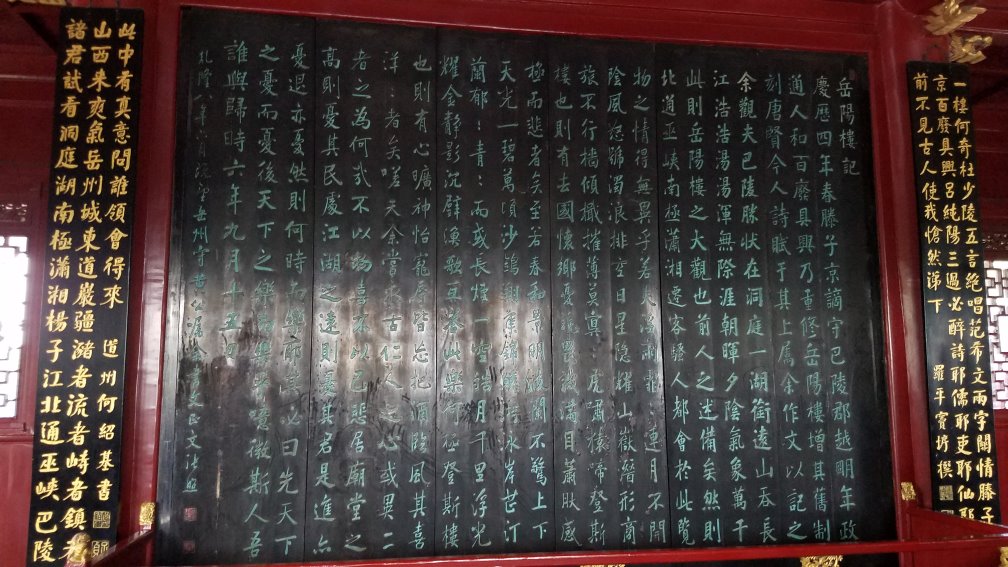 一樓何奇杜少陵五言絕唱范希文兩字關情滕子
京百廢具興呂純陽三過必醉詩耶儒耶吏耶仙耶
前不見古人使我愴然涕下 羅平竇垿撰
岳陽樓記
慶歷四年春滕子京謫守巴陵郡越明年政
通人和百廢具興乃重修岳陽樓增其舊制
刻唐賢今人詩賦于其上屬余作文以記之
余觀夫巴陵勝狀在洞庭一湖銜遠山吞長
江浩浩湯湯渾無際涯朝暉夕陰氣象萬千
此則岳陽樓之大觀也前人之述備矣然則
北通巫峽南極瀟湘遷客騷人都會於此覽
物之情得無異乎若夫淫雨霏〻連月不開
陰風怒號濁浪排空日星隱耀山嶽潛形商
旅不行檣傾檝摧薄莫冥〻虎嘯猿啼登斯
樓也則有去國懷鄉憂讒畏譏滿目蕭然感
極而悲者矣至若春和景明波瀾不驚上下
天光一碧萬頃沙鷗翔集錦鱗游泳岸芷汀
蘭郁〻青〻而或長煙一空皓月千里浮光
耀金靜影沉璧漁歌互答此樂何極登斯樓
也則有心曠神怡寵辱皆忘把酒臨風其喜
洋〻者矣嗟夫余嘗求古仁人之心或異二
者之為何哉不以物喜不以己悲居廟堂之
高則憂其民處江湖之遠則憂其君是進亦
憂退亦憂然則何時而樂耶其必曰先天下
之憂而憂後天下之樂而樂與噫微斯人吾
誰與歸時六年九月十五日
諸君試看洞庭湖南極瀟湘楊子江北通巫峽巴陵
山西來爽氣岳州城東道巖疆瀦者流者峙者鎮者
此中有真意問誰領會得來 道州何紹基書